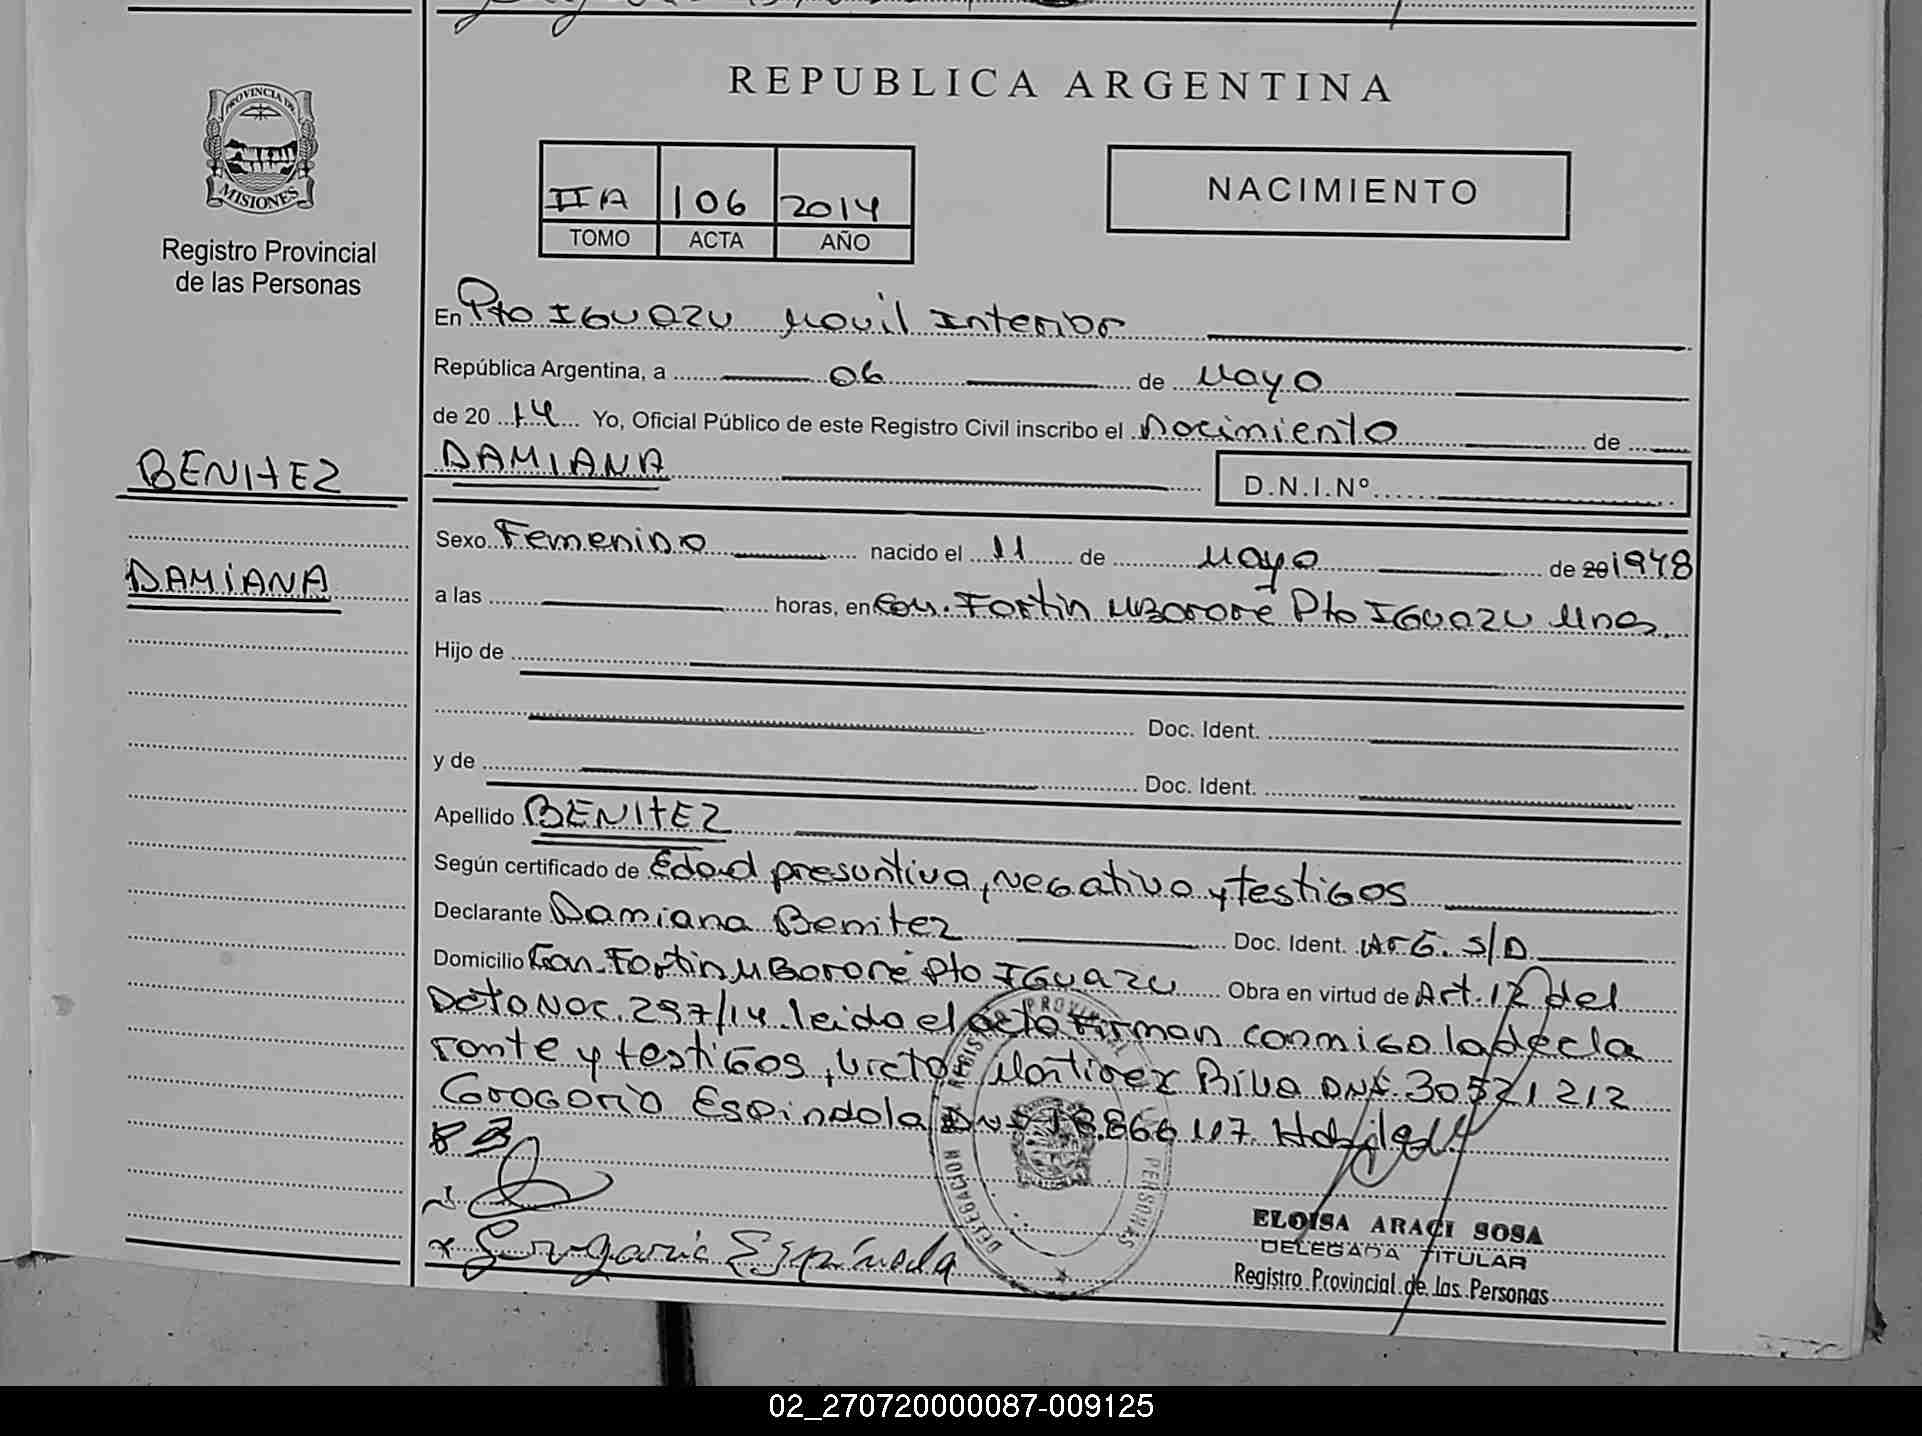 REPUBLICA ARGENTINA
PROVINCIA DE
MISIONES
Registro Provincial
de las Personas
IIA 106 2014
TOMO ACTA AÑO
NACIMIENTO
En Pto IGUAZU Movil Interior
República Argentina, a 06 de Mayo
de 2014 Yo, Oficial Público de este Registro Civil inscribo el Nacimiento de
BENITEZ
DAMIANA
DAMIANA
D.N.I.Nº
Sexo Femenino nacido el 11 de Mayo de 20 1948
a las horas, en Com. Fortin MBororé Pto IGUAZU Mnes.
Hijo de
Doc. Ident.
y de Doc. Ident.
Apellido BENITEZ
Según certificado de Edad presuntiva, negativo y testigos
Declarante Damiana Benitez Doc. Ident. ArG. S/D
Domicilio Com. Fortin MBororé Pto IGUAZU Obra en virtud de Art. 12 del
Dcto Nac. 297/14. leido el acta Firman conmigo la decla
rante y testigos, Victor Martinez Silva DNI. 30521212
Gregorio Espindola DNI 18.866.117.
Gregorio Espindola
DELEGACION REGISTRO PROVINCIAL PERSONAS
ELOISA ARACI SOSA
DELEGADA TITULAR
Registro Provincial de las Personas
02_270720000087-009125